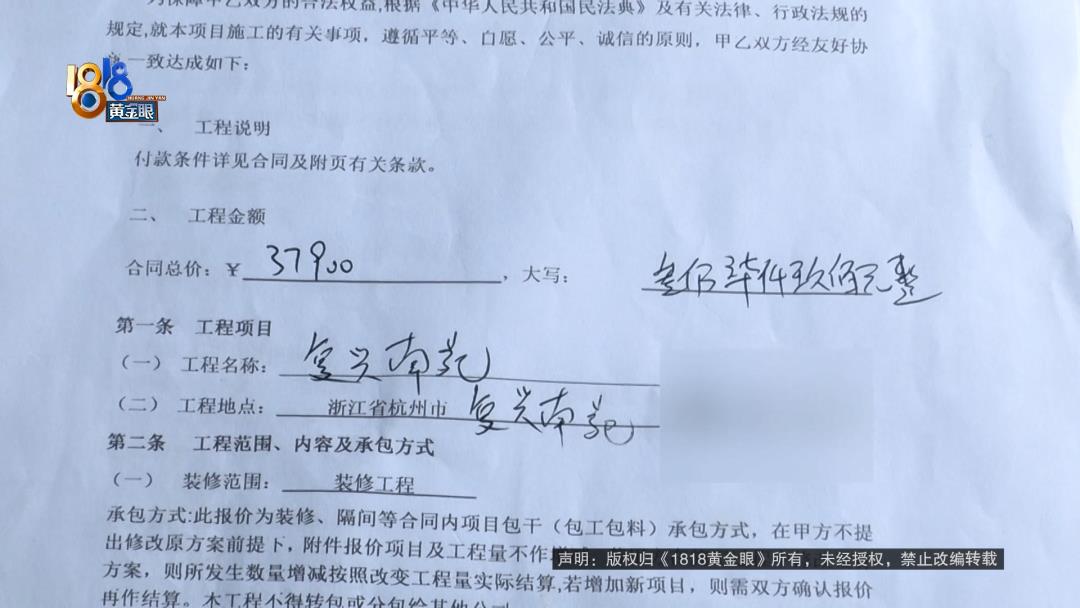 为保障甲乙双方的合法权益,根据《中华人民共和国民法典》及有关法律、行政法规的
规定,就本项目施工的有关事项，遵循平等、自愿、公平、诚信的原则，甲乙双方经友好协
一致达成如下：
1818
HUANG JIN YAN
黄金眼
一、 工程说明
付款条件详见合同及附页有关条款。
二、 工程金额
合同总价：￥ 37900 ，大写： 叁仟柒仟玖佰元整
第一条 工程项目
（一） 工程名称： 复兴南苑
（二） 工程地点： 浙江省杭州市 复兴南苑
第二条 工程范围、内容及承包方式
（一） 装修范围： 装修工程
承包方式:此报价为装修、隔间等合同内项目包干（包工包料）承包方式，在甲方不提
出修改原方案前提下，附件报价项目及工程量不作
声明：版权归《1818黄金眼》所有，未经授权，禁止改编转载
方案，则所发生数量增减按照改变工程量实际结算,若增加新项目，则需双方确认报价
再作结算。本工程不得转包或分包给其他公司